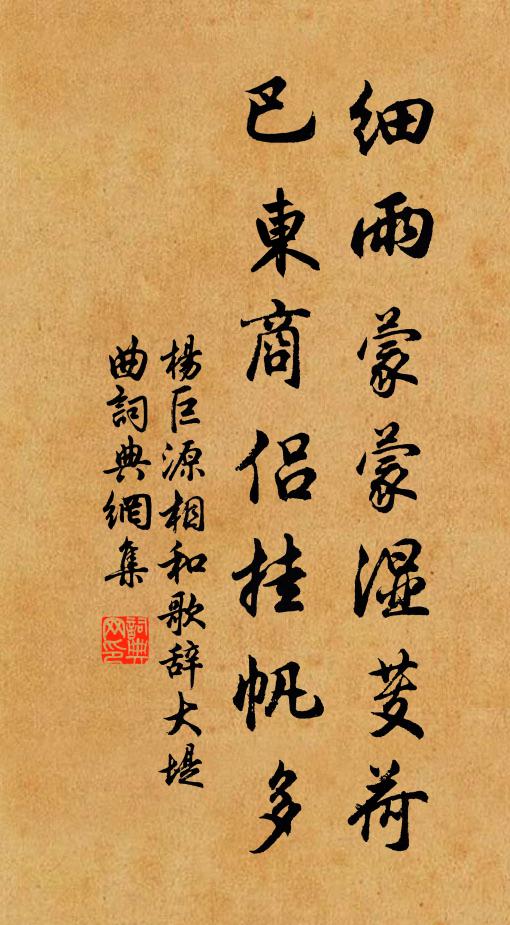 细雨蒙蒙湿芰荷
巴東商侣挂帆多
楊巨源相和歌辞大堤
曲詞典網集
詞典網印